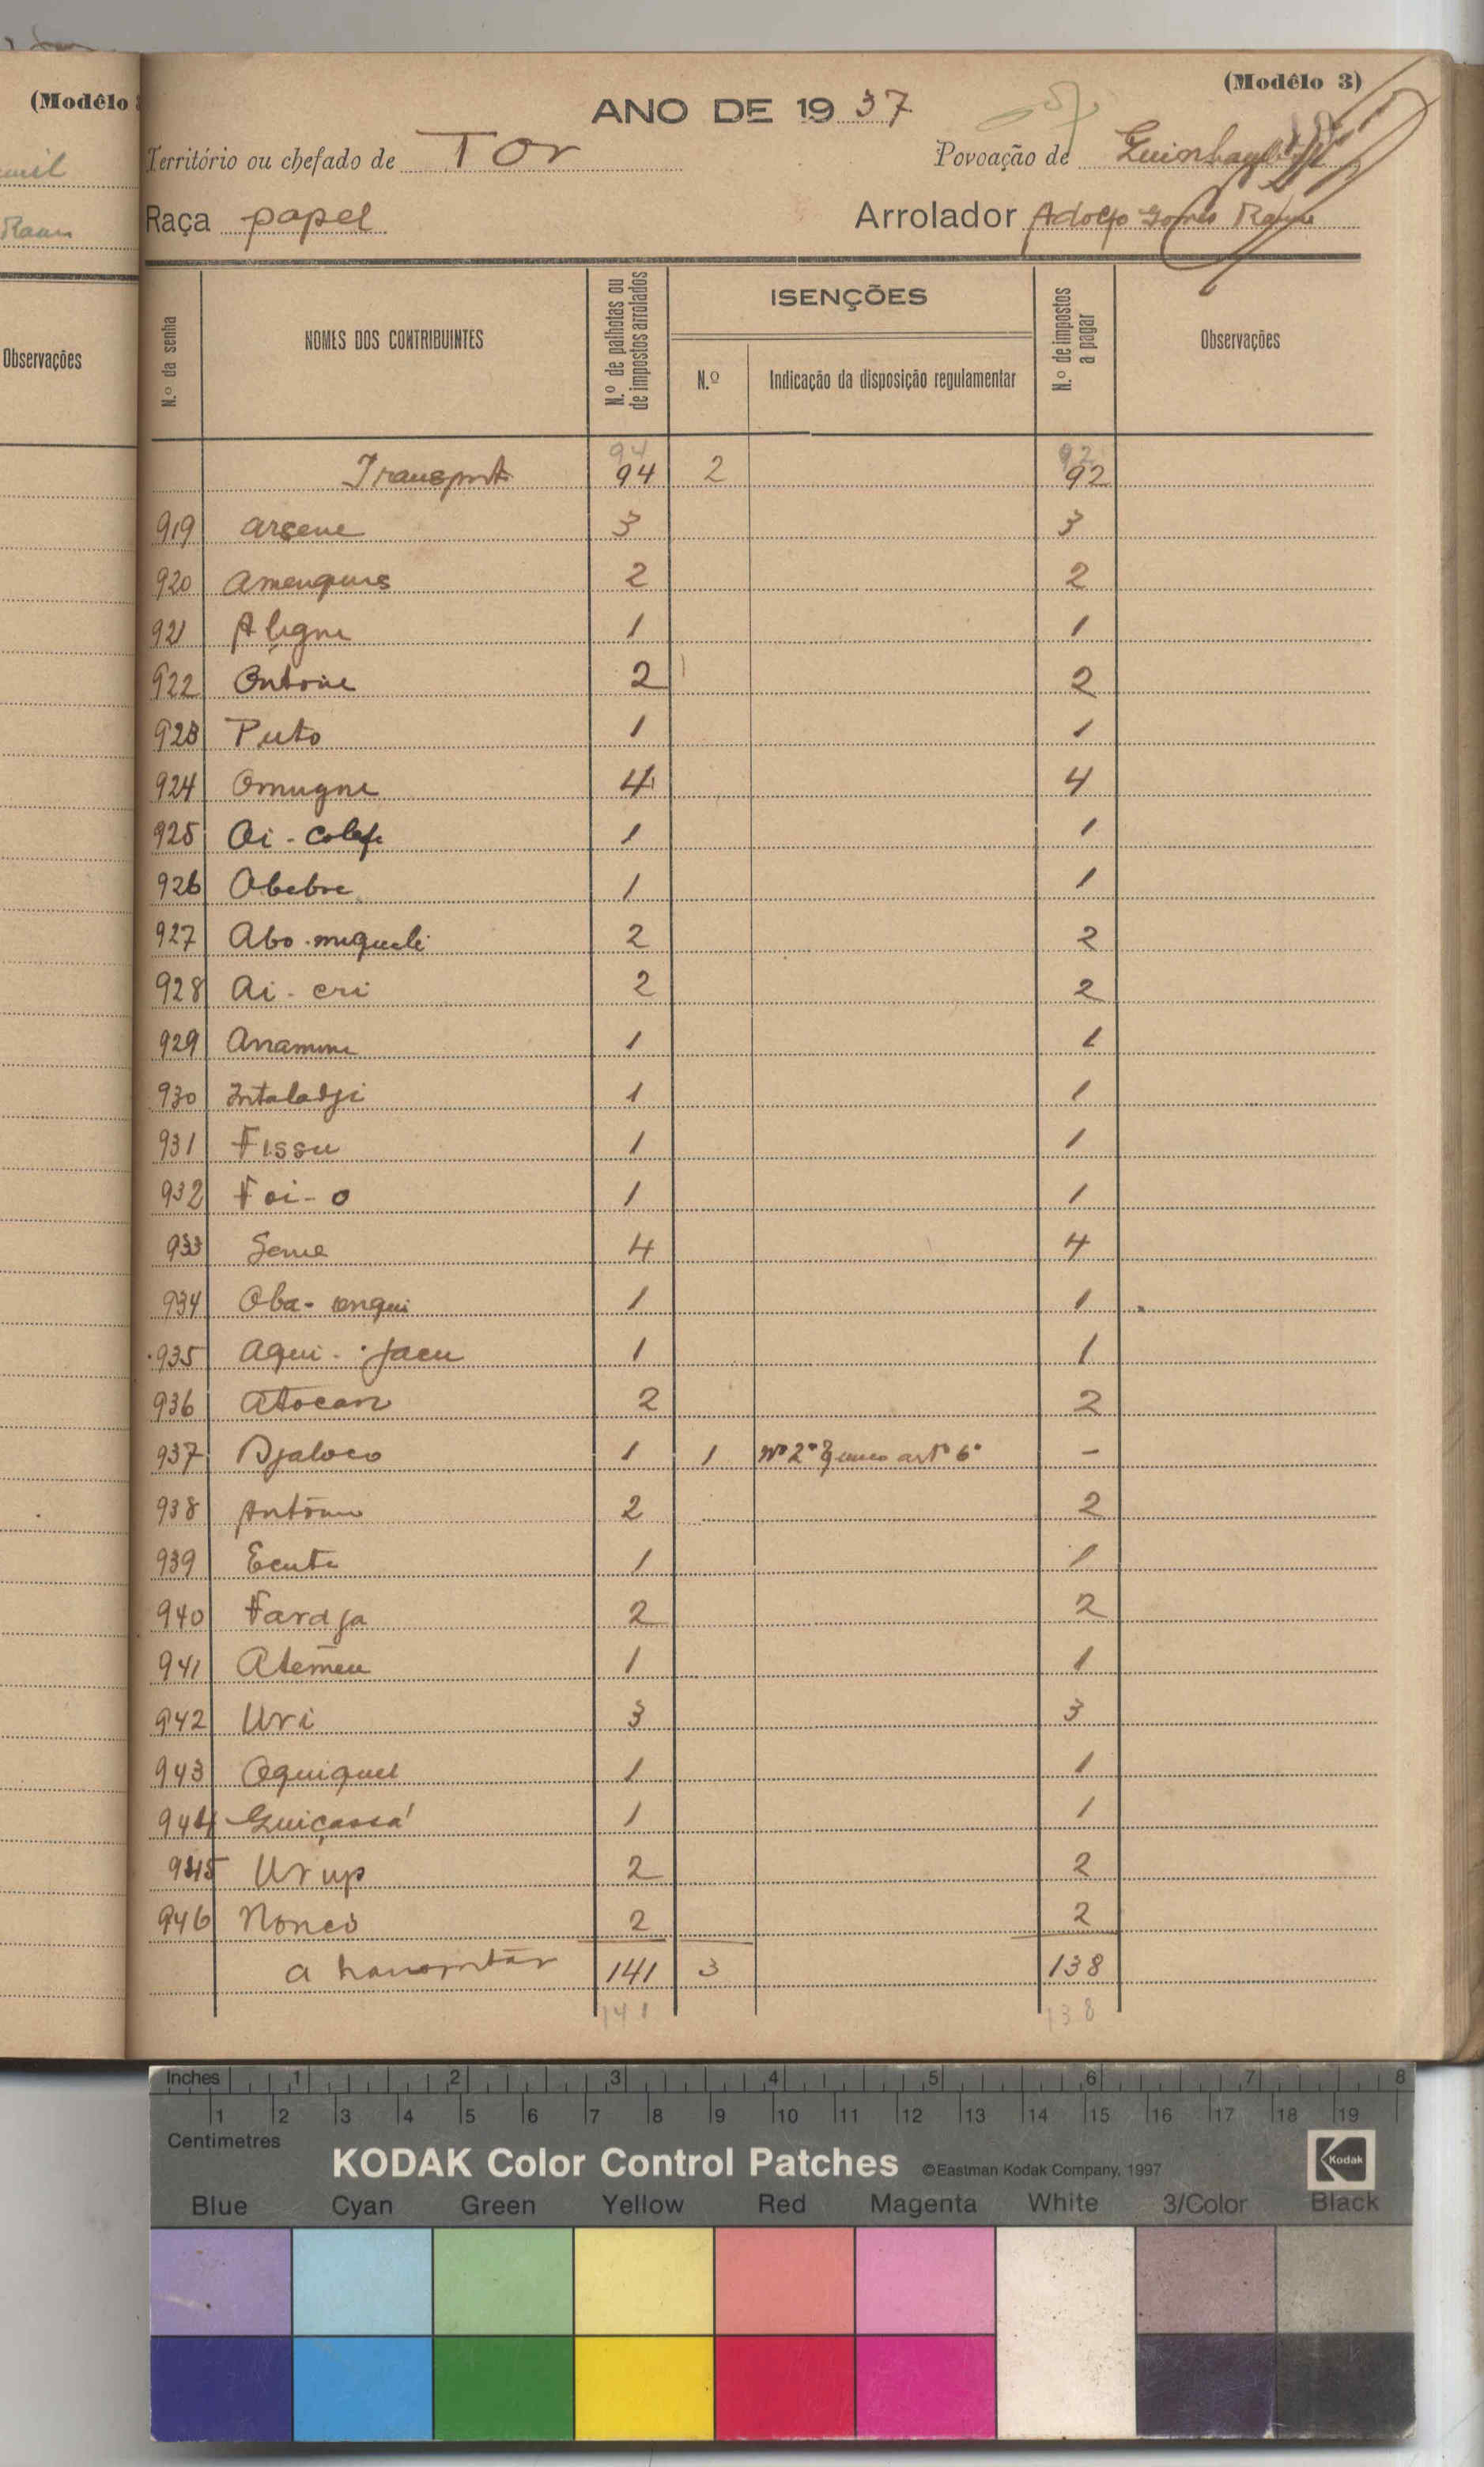 (Modêlo
Observações
(Modêlo 3)
ANO DE 1937
Território ou chefado de Tor
Povoação de
Raça papel
Arrolador Adolfo Gomes
N.º da senha
NOMES DOS CONTRIBUINTES
N.º de palhotas ou de impostos arrolados
ISENÇÕES
N.º
Indicação da disposição regulamentar
N.º de impostos a pagar
Observações
94 92
Transporte 94 2 92
919 Arsene 3 3
920 2 2
921 Aligne 1 1
922 Ontone 2 2
923 Puto 1 1
924 Omugne 4 4
925 Oi - Colefe 1 1
926 Obebre 1 1
927 Abo-miqueli 2 2
928 Ai - cri 2 2
929 1 1
930 Intaladji 1 1
931 Fissu 1 1
932 Foi - o 1 1
933 Gome 4 4
934 Oba - 1 1
935 Aqui - Jacu 1 1
936 Atocan 2 2
937 Djaloco 1 1 Nº 2º § unico artº 6º -
938 António 2 2
939 Ecute 1 1
940 Faradja 2 2
941 Atemeu 1 1
942 Uri 3 3
943 Oquiquel 1 1
944 Guiçassá 1 1
945 Urup 2 2
946 Nonco 2 2
A transportar 141 3 138
141 138
Inches 1 2 3 4 5 6 7 8
1 2 3 4 5 6 7 8 9 10 11 12 13 14 15 16 17 18 19
Centimetres
KODAK Color Control Patches ©Eastman Kodak Company, 1997 Kodak
Blue Cyan Green Yellow Red Magenta White 3/Color Black